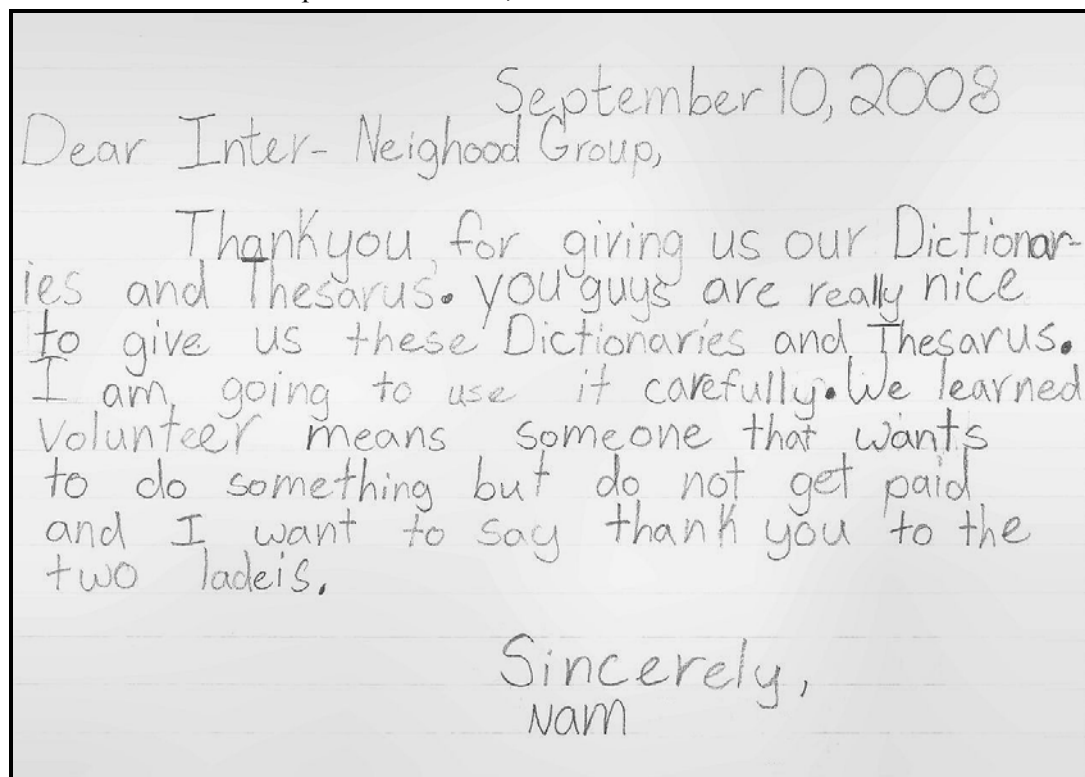 September 10, 2008
Dear Inter- Neighood Group,
Thankyou, for giving us our Dictionar-
ies and Thesarus. you guys are really nice
to give us these Dictionaries and Thesarus.
I am, going to use it carefully. We learned
Volunteer means someone that wants
to do something but do not get paid
and I want to say thank you to the
two ladeis.
Sincerely,
Nam